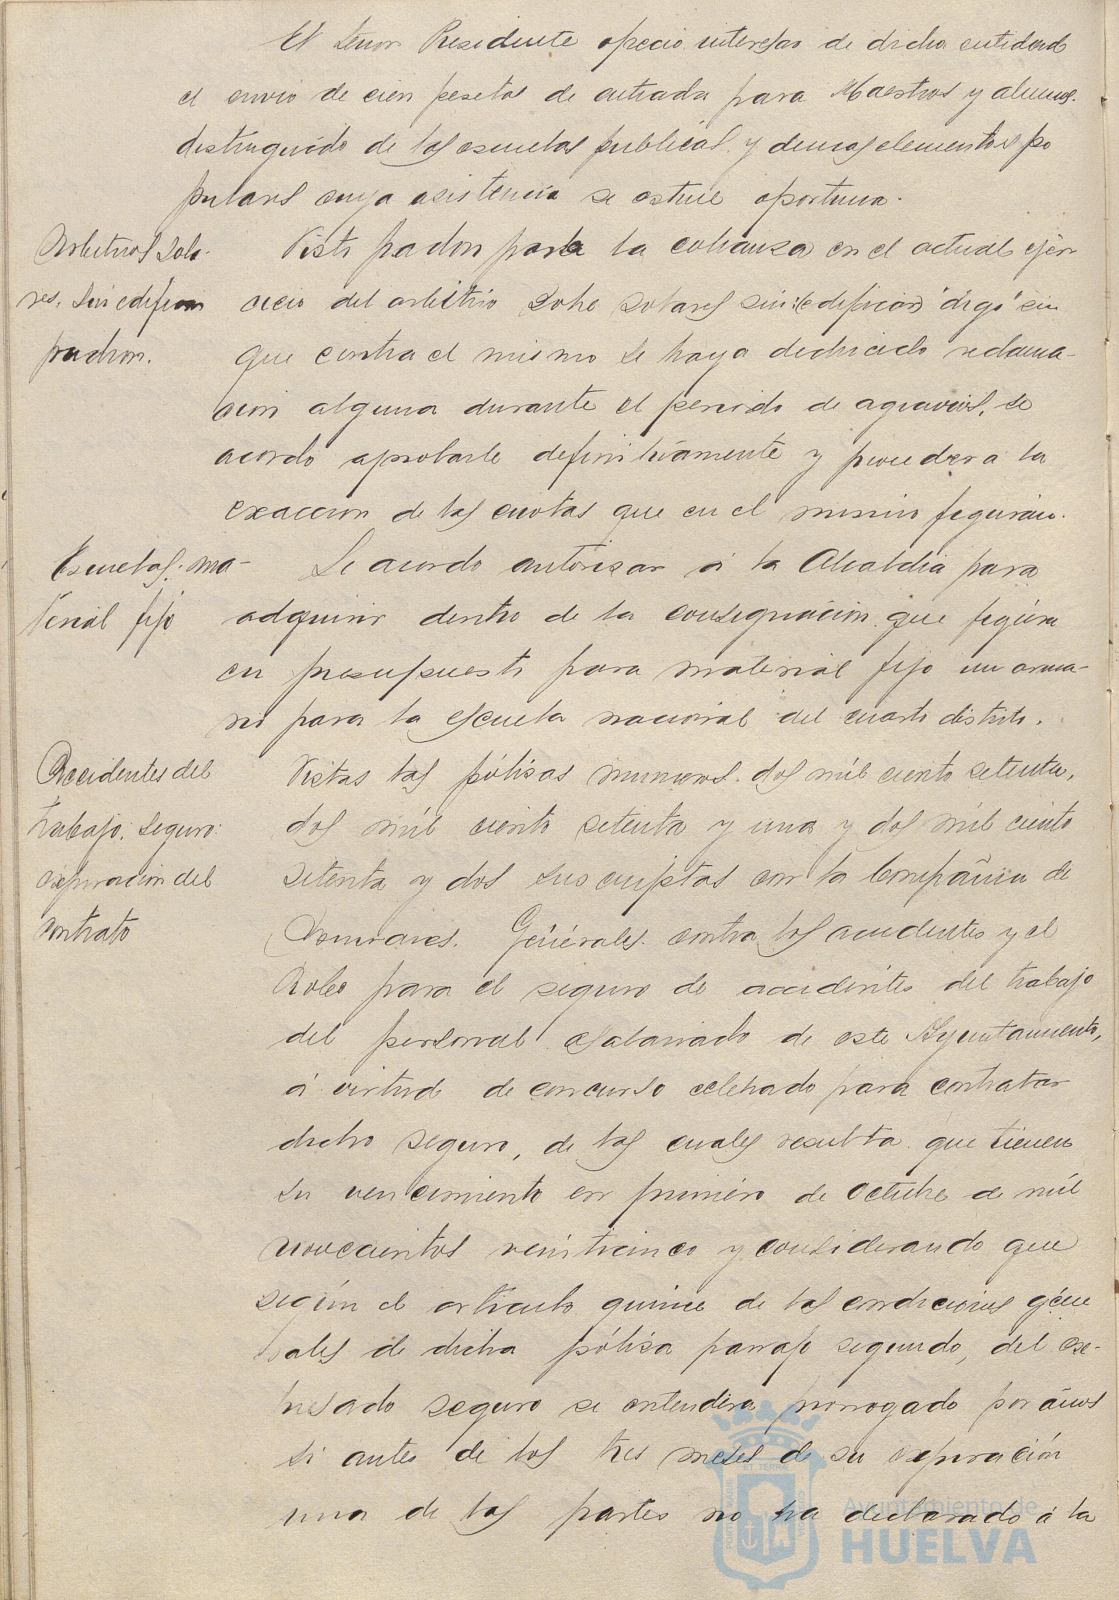 El Señor Presidente ofreció interesar de dicha entidad
el envio de cien pesetas de entrada para Maestros y alumnos
distinguido de las escuelas publicas y demas elementos po
pulares cuya asistencia se estime oportuna.
Arbitrios Sola-
res. Sin edificar
padron.
Visto padron para la cobranza en el actual ejer-
cicio del arbitrio sobre solares sin edificar, digo sin
que contra el mismo se haya deducido reclama-
cion alguna durante el periodo de agravios, se
acordo aprobarle definitivamente y procedera la
exaccion de las cuotas que en el mismo figuran.
Escuelas. Ma-
terial fijo
Se acordo autorisar á la Alcaldia para
adquirir dentro de la consignación que figura
en presupuesto para material fijo un arma-
rio para la escuela nacional del cuarto distrito.
Accidentes del
trabajo. Seguro.
expiración del
contrato
Vistas las pólisas numeros dos mil ciento setenta,
dos mil ciento setenta y una y dos mil ciento
setenta y dos suscriptas con la Compañia de
Generales contra los accidentes y el
Robo para el seguro de accidentes del trabajo
del personal asalariado de este Ayuntamiento,
á virtud de concurso celebrado para contratar
dicho seguro, de las cuales resulta que tienen
su vencimiento en primero de Octubre de mil
novecientos veinticinco y considerando que
según el articulo quince de las condiciones gene
rales de dicha pólisa parrafo segundo, del ex-
presado seguro se entendera prorrogado por años
si antes de los tres meses de su expiración
una de las partes no ha declarado á la
Ayuntamiento de
HUELVA